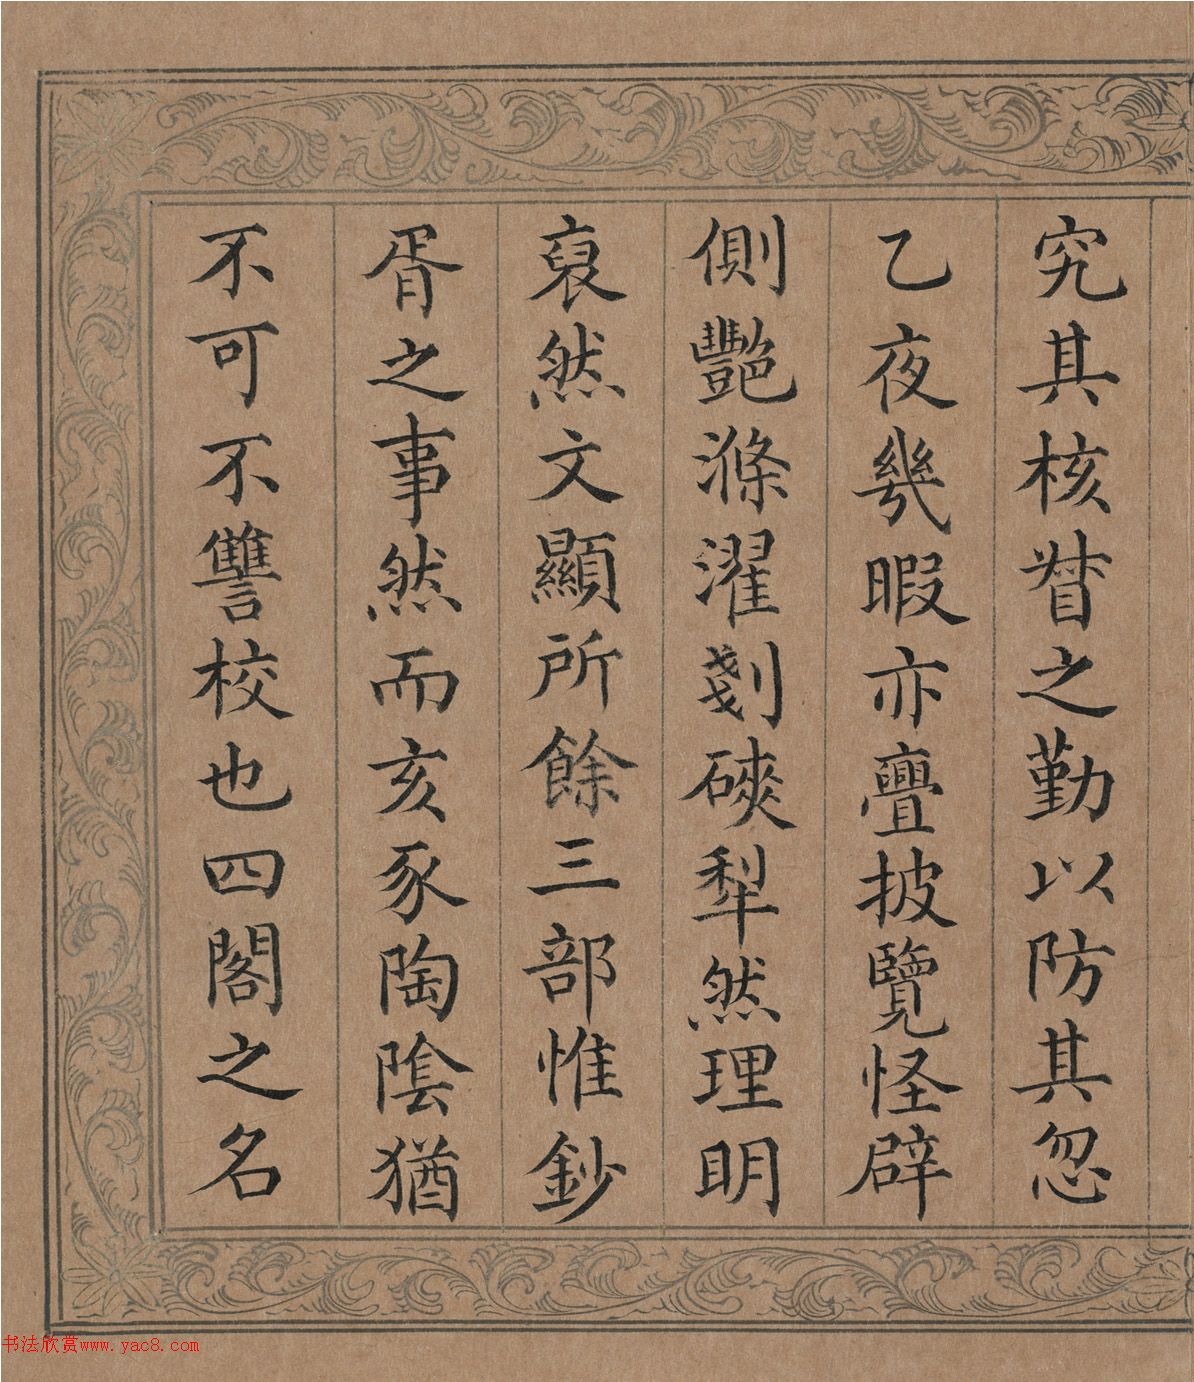 究其核督之勤以防其忽
乙夜幾暇亦亹披覽怪辟
側艷滌濯剗磢犁然理明
裒然文顯所餘三部惟鈔
胥之事然而亥豕陶陰猶
不可不讐校也四閣之名
书法欣赏www.yac8.com